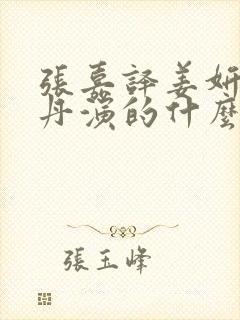 張嘉譯姜妍
丹演的什麼
張玉峰